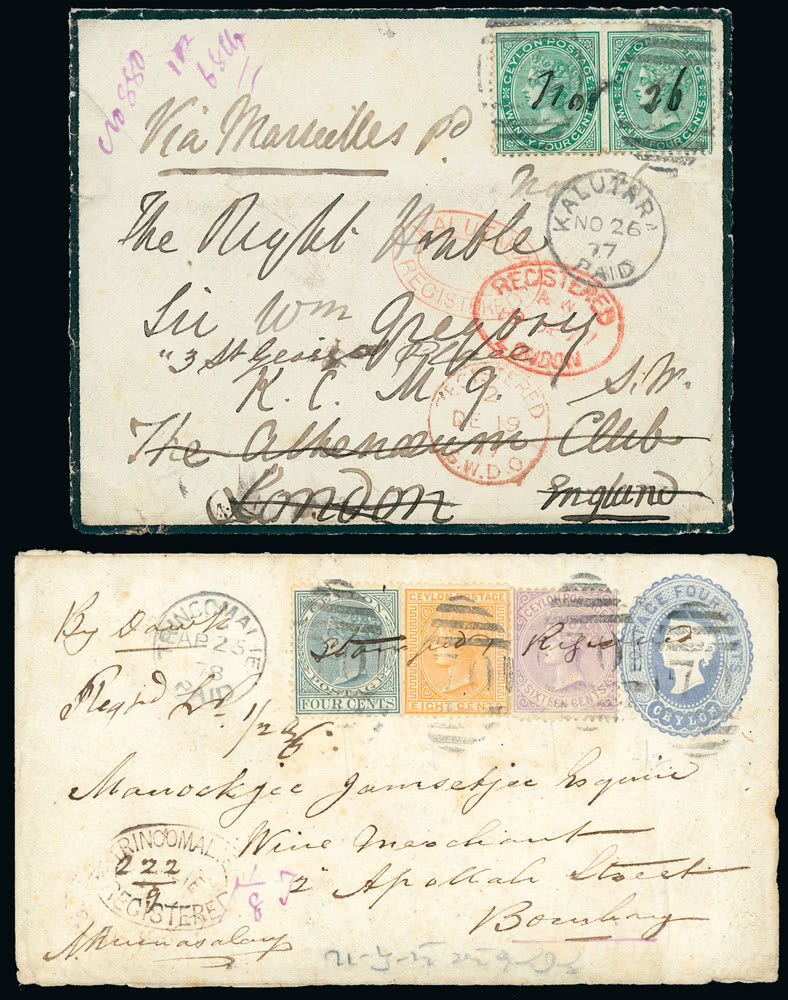 CEYLON POSTAGE
TWENTY FOUR CENTS
CEYLON POSTAGE
TWENTY FOUR CENTS
Nov 26
Via Marseilles pd
KALUTARA
NO 26
77
PAID
The Right Honble
KALUTARA
REGISTERED
REGISTERED
LONDON
Sir Wm Gregory
"3 St George's Place
K. C. M. G. S.W.
REGISTERED
2
DE 19
77
S.W.D.O.
The Athenæum Club
London England
TRINCOMALIE
AP 25
78
PAID
CEYLON
POSTAGE
FOUR CENTS
CEYLON POSTAGE
EIGHT CENTS
CEYLON POSTAGE
SIXTEEN CENTS
POSTAGE FOUR
CEYLON
Stamped & Registered
By Dawk
Regd Lr 1/2 oz.
Manockjee Jamsetjee Esquire
Wine Merchant
2 Apollah Street
Bombay
TRINCOMALIE
REGISTERED
222
9